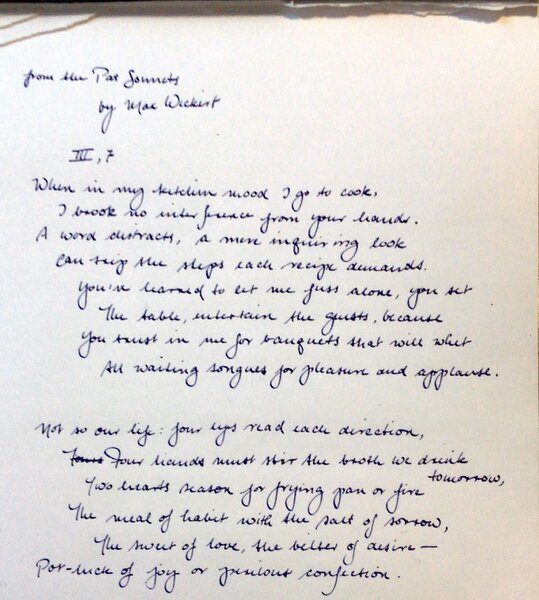 from the Pat Sonnets
by Max Wickert
III, 7
When in my kitchen mood I go to cook,
I brook no interference from your hands.
A word distracts, a mere inquiring look
Can skip the steps each recipe demands.
You've learned to let me fuss alone, you set
The table, entertain the guests, because
You trust in me for banquets that will whet
All waiting tongues for pleasure and applause.
Not so our life: four eyes read each direction,
Four hands must stir the broth we drink tomorrow,
Two hearts season for frying pan or fire
The meal of habit with the salt of sorrow,
The sweet of love, the bitter of desire—
Pot-luck of joy or perilous confection.